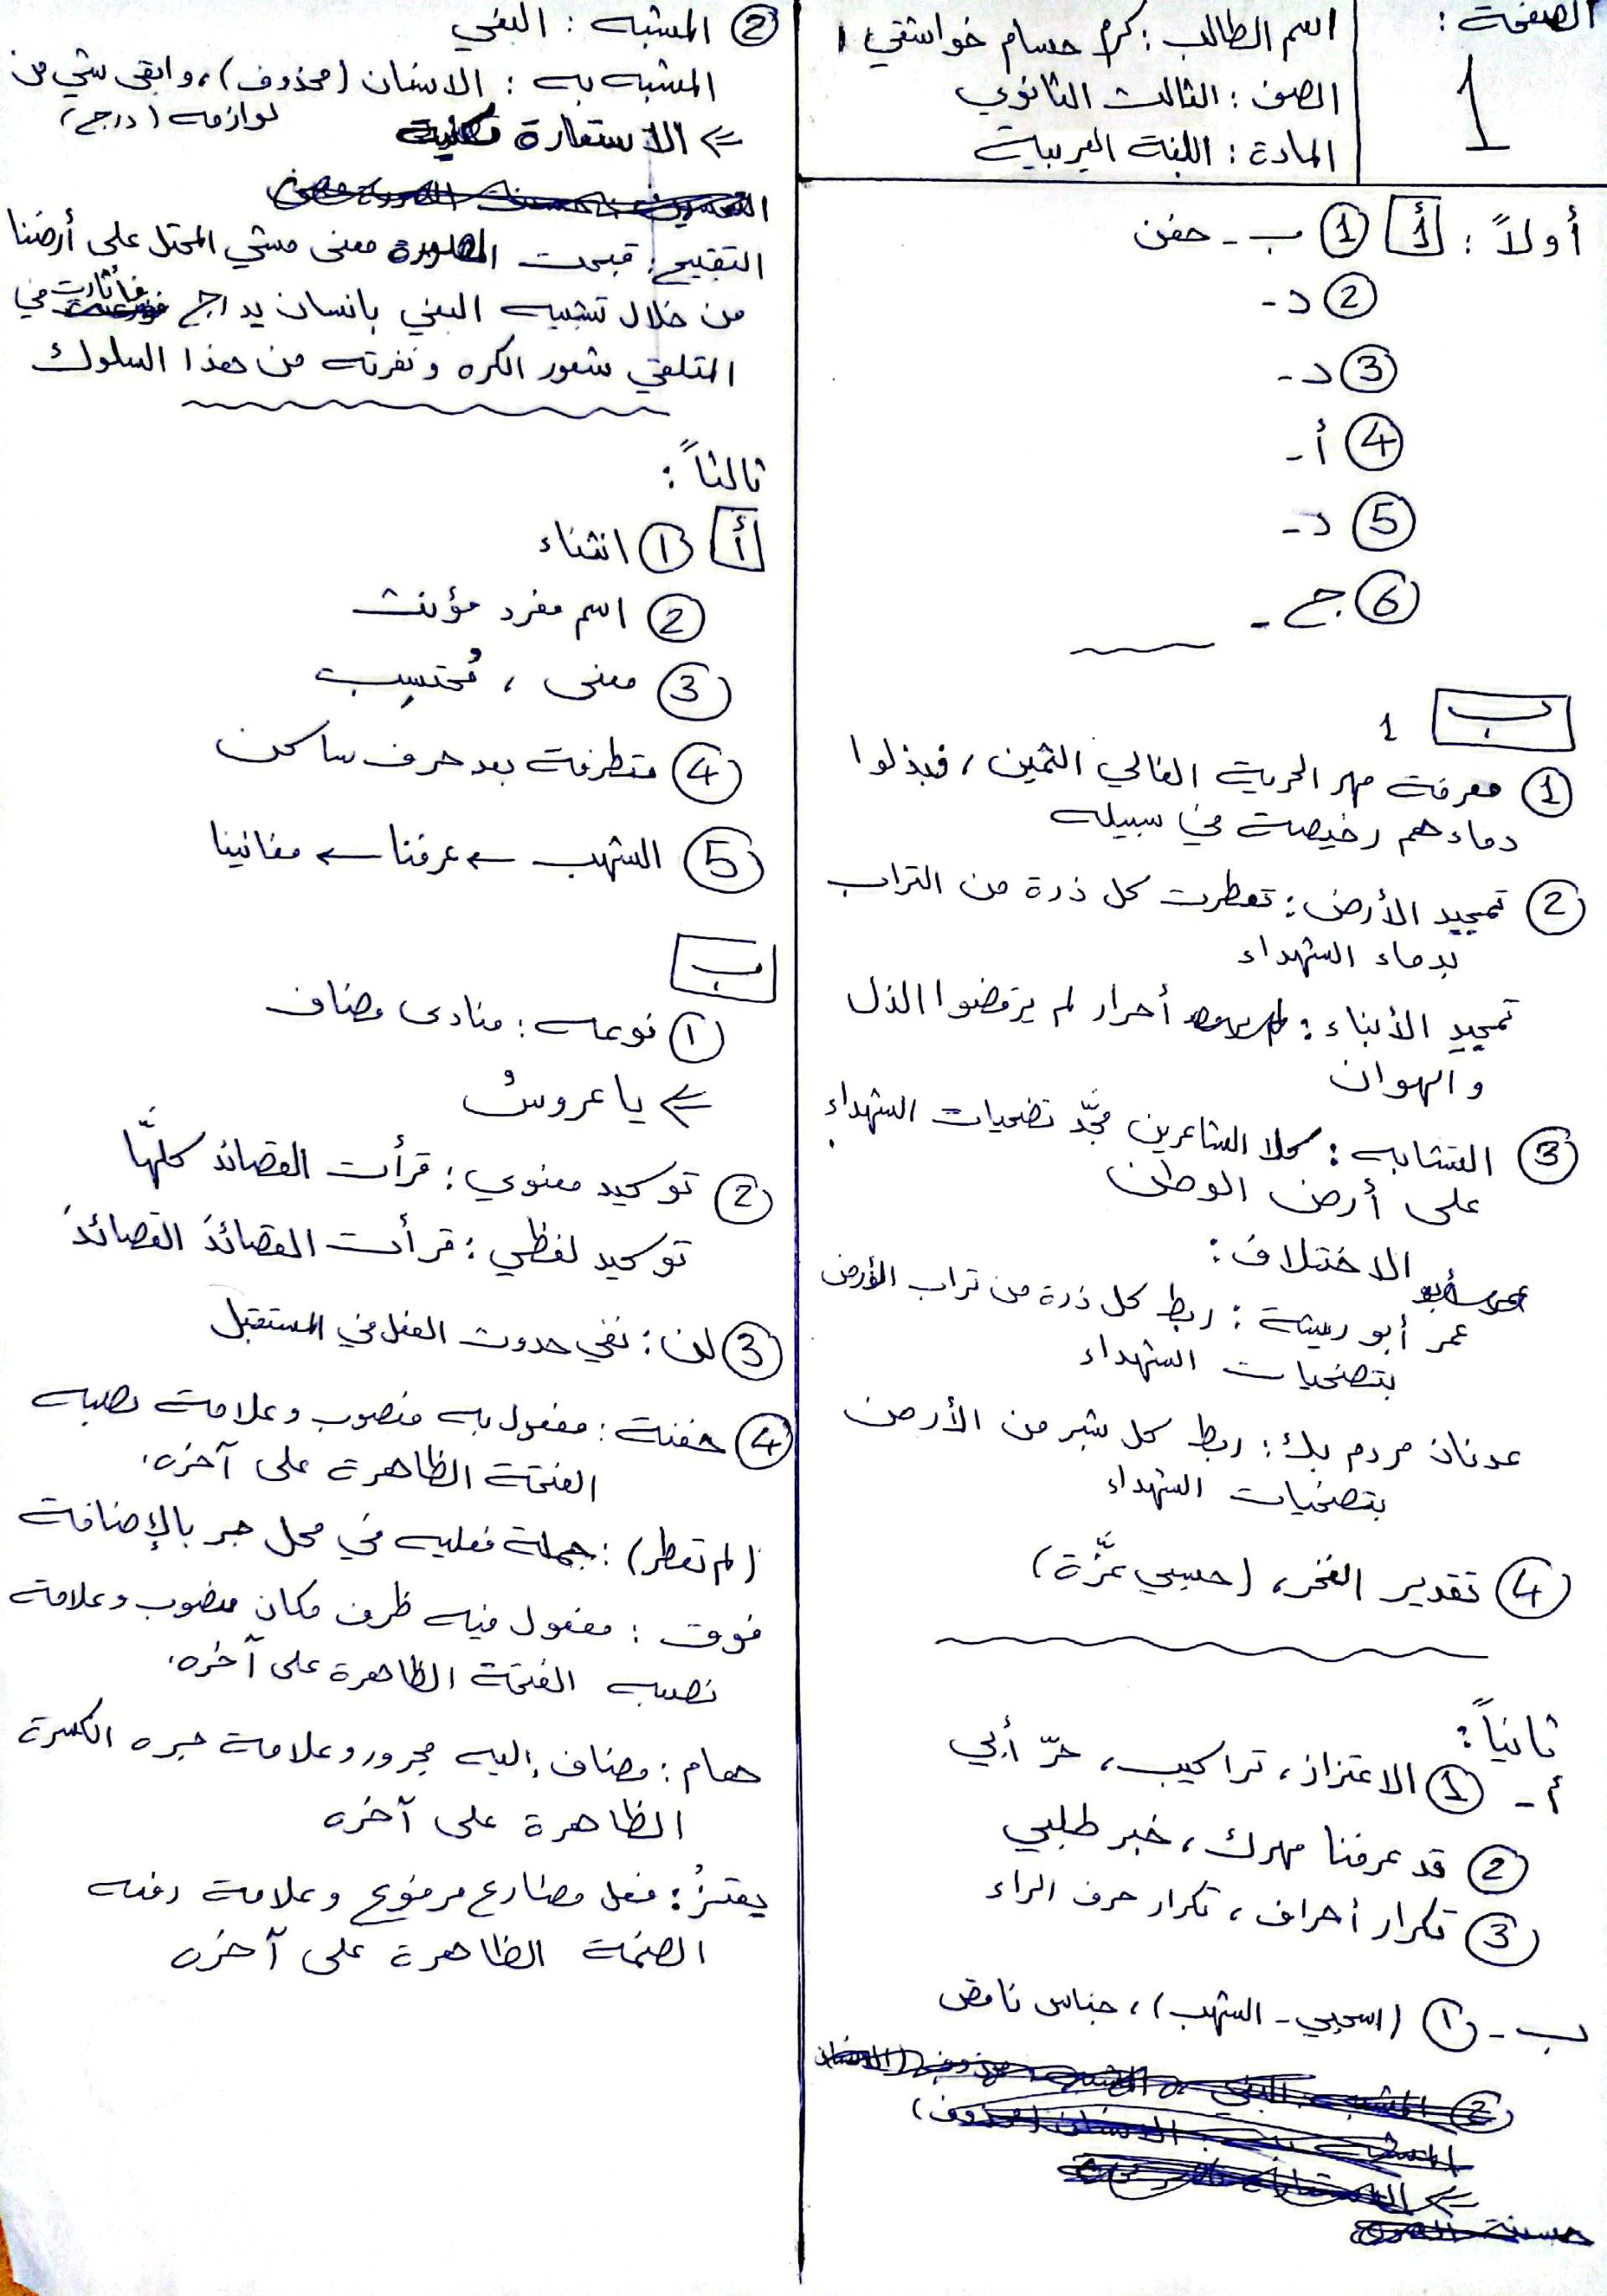 الصفحة :
1
اسم الطالب : كرم حسام خواشقي
الصف : الثالث الثانوي
المادة : اللغة العربية
أولاً : أ ① ب - حفن
② د -
③ د -
④ أ -
⑤ د -
⑥ ج -
ب 1
① معرفة مهر الحرية الغالي الثمين ، فبذلوا
دماءهم رخيصة في سبيله
② تمجيد الأرض : تعطرت كل ذرة من التراب
بدماء الشهداء
تمجيد الأبناء : أحرار لم يرضوا الذل
والهوان
③ التشابه : كلا الشاعرين مجّد تضحيات الشهداء
على أرض الوطن
الاختلاف :
عمر أبو ريشة : ربط كل ذرة من تراب الأرض
بتضحيات الشهداء
عدنان مردم بك : ربط كل شبر من الأرض
بتضحيات الشهداء
④ تقدير الفخر ، (حسبي عزّة)
ثانياً :
أ - ① الاعتزاز ، تراكيب ، حرّ أبي
② قد عرفنا مهرك ، خبر طلبي
③ تكرار أحراف ، تكرار حرف الراء
ب - ① (اسحبي - الشهب) ، جناس ناقص
② المشبه : البغي
المشبه به : الانسان (محذوف) ، وابقى شي من
لوازمه (درج)
⇐ الاستعارة مكنية
التقبيح : قبحت الصورة معنى مشي المحتل على أرضنا
من خلال تشبيه البغي بانسان يدرج فأثارت في
المتلقي شعور الكره ونفرته من هذا السلوك
ثالثاً :
أ ① انشاء
② اسم مفرد مؤنث
③ معنى ، مُحتسِب
④ متطرفة بعد حرف ساكن
⑤ الشهب ← عرفنا ← مغانينا
ب
① نوعه : منادى مضاف
⇐ يا عروسُ
② توكيد معنوي : قرأت القصائدَ كلَّها
توكيد لفظي : قرأت القصائدَ القصائدَ
③ لن : نفي حدوث الفعل في المستقبل
④ حفنة : مفعول به منصوب وعلامة نصبه
الفتحة الظاهرة على آخره .
(لم تعطر) : جملة فعليه في محل جر بالإضافة
فوق : مفعول فيه ظرف مكان منصوب وعلامة
نصبه الفتحة الظاهرة على آخره .
هام : مضاف إليه مجرور وعلامة جره الكسرة
الظاهرة على آخره
يعتزُ : فعل مضارع مرفوع وعلامة رفعه
الضمة الظاهرة على آخره